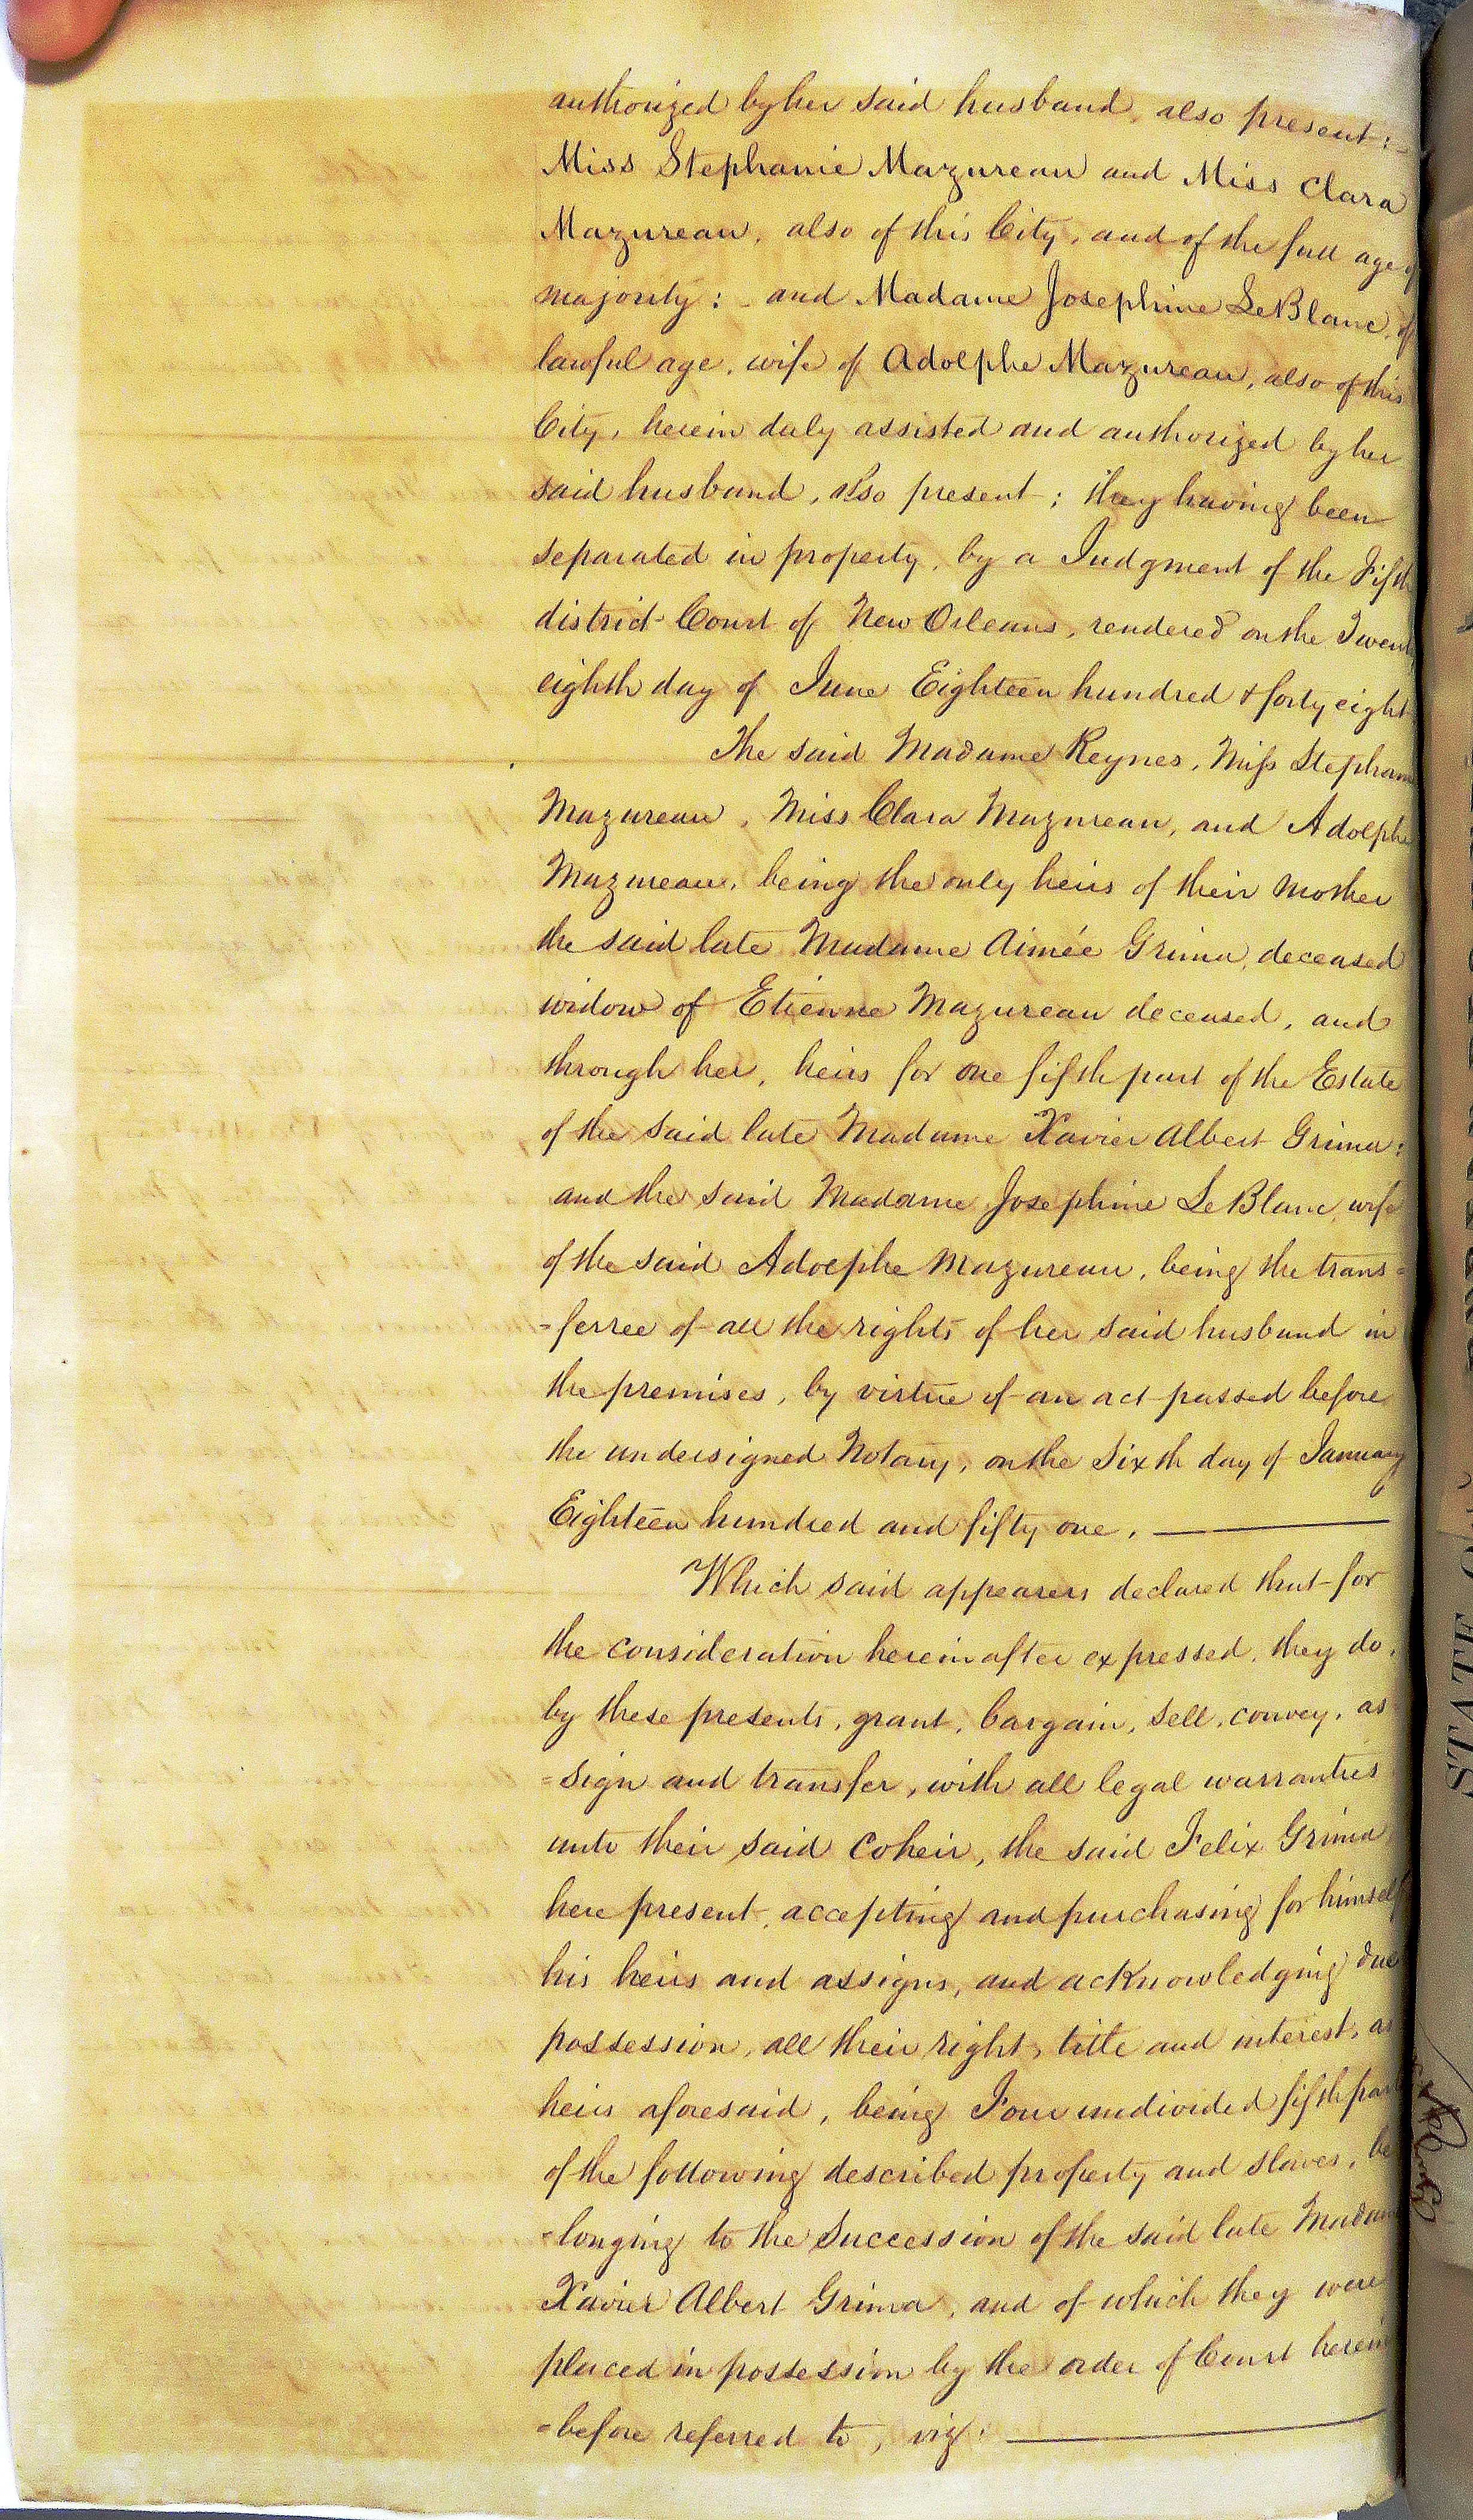 authorized by her said husband, also present: -
Miss Stephanie Mazureau and Miss Clara
Mazureau, also of this City, and of the full age of
majority: - and Madame Josephine LeBlanc, of
lawful age, wife of Adolphe Mazureau, also of this
City, herein duly assisted and authorized by her
said husband, also present; they having been
separated in property, by a Judgment of the Fifth
district Court of New Orleans, rendered on the Twenty
eighth day of June Eighteen hundred & forty eight
The said Madame Reynes, Miss Stephanie
Mazureau, Miss Clara Mazureau, and Adolphe
Mazureau, being the only heirs of their mother
the said late Madame Aimée Grima, deceased
widow of Etienne Mazureau deceased, and
through her, heirs for one fifth part of the Estate
of the said late Madame Xavier Albert Grima:
and the said Madame Josephine LeBlanc, wife
of the said Adolphe Mazureau, being the trans=
=ferree of all the rights of her said husband in
the premises, by virtue of an act passed before
the undersigned Notary, on the Sixth day of January
Eighteen hundred and fifty one.
Which said appearers declared that for
the consideration herein after expressed, they do,
by these presents, grant, bargain, sell, convey, as
=sign and transfer, with all legal warranties
unto their said Coheir, the said Felix Grima
here present, accepting and purchasing for himself
his heirs and assigns, and acknowledging due
possession, all their right, title and interest, as
heirs aforesaid, being Four undivided fifth parts
of the following described property and slaves, be
=longing to the Succession of the said late Madam
Xavier Albert Grima, and of which they were
placed in possession by the order of Court herein
=before referred to, viz:
STATE OF